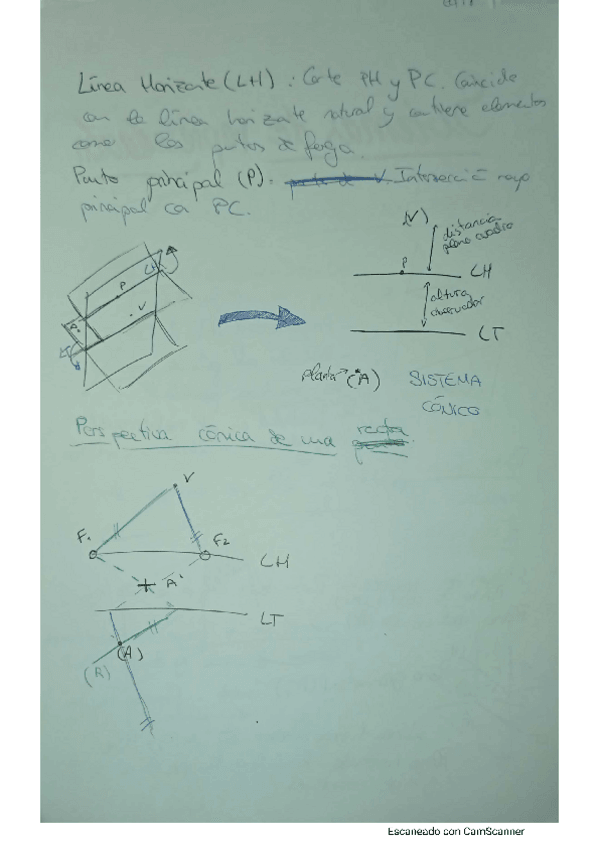 Línea Horizonte (LH) : Corte PH y PC. Coincide
con la línea horizonte natural y contiene elementos
como los puntos de fuga.
Punto principal (P). V. Intersección rayo
principal con PC.
(V)
distancia
plano cuadro
P
LH
LH
P
V
altura
observador
LT
planta → (A)
SISTEMA
CÓNICO
Perspectiva cónica de una recta.
V
F1
F2
LH
A'
LT
(A)
(R)
Escaneado con CamScanner